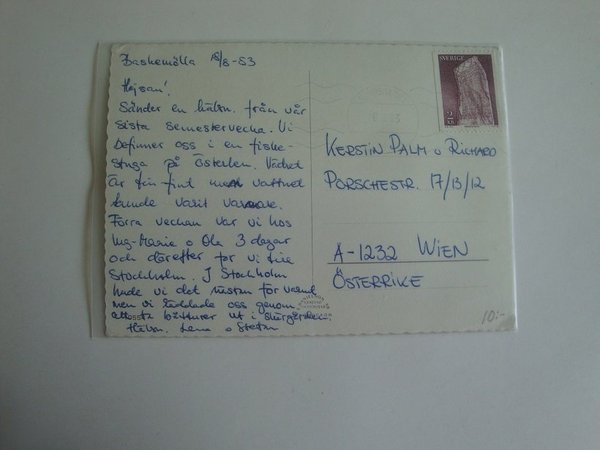 Baskemölla 18/8-83
Hejsan!
Sänder en hälsn. från vår
sista semestervecka. Vi
befinner oss i en fiske-
stuga på Österlen. Vädret
är fin fint men vattnet
kunde varit varmare.
Förra veckan var vi hos
Ing-Marie o Ola 3 dagar
och därefter for vi till
Stockholm. I Stockholm
hade vi det nästan för varmt
men vi räddade oss genom
att ta båtturer ut i skärgården.
Hälsn. Lena o Stefan
SVERIGE
2 KR
KERSTIN PALM o RICHARD
PORSCHESTR. 17/13/12
A-1232 WIEN
ÖSTERRIKE
10:-